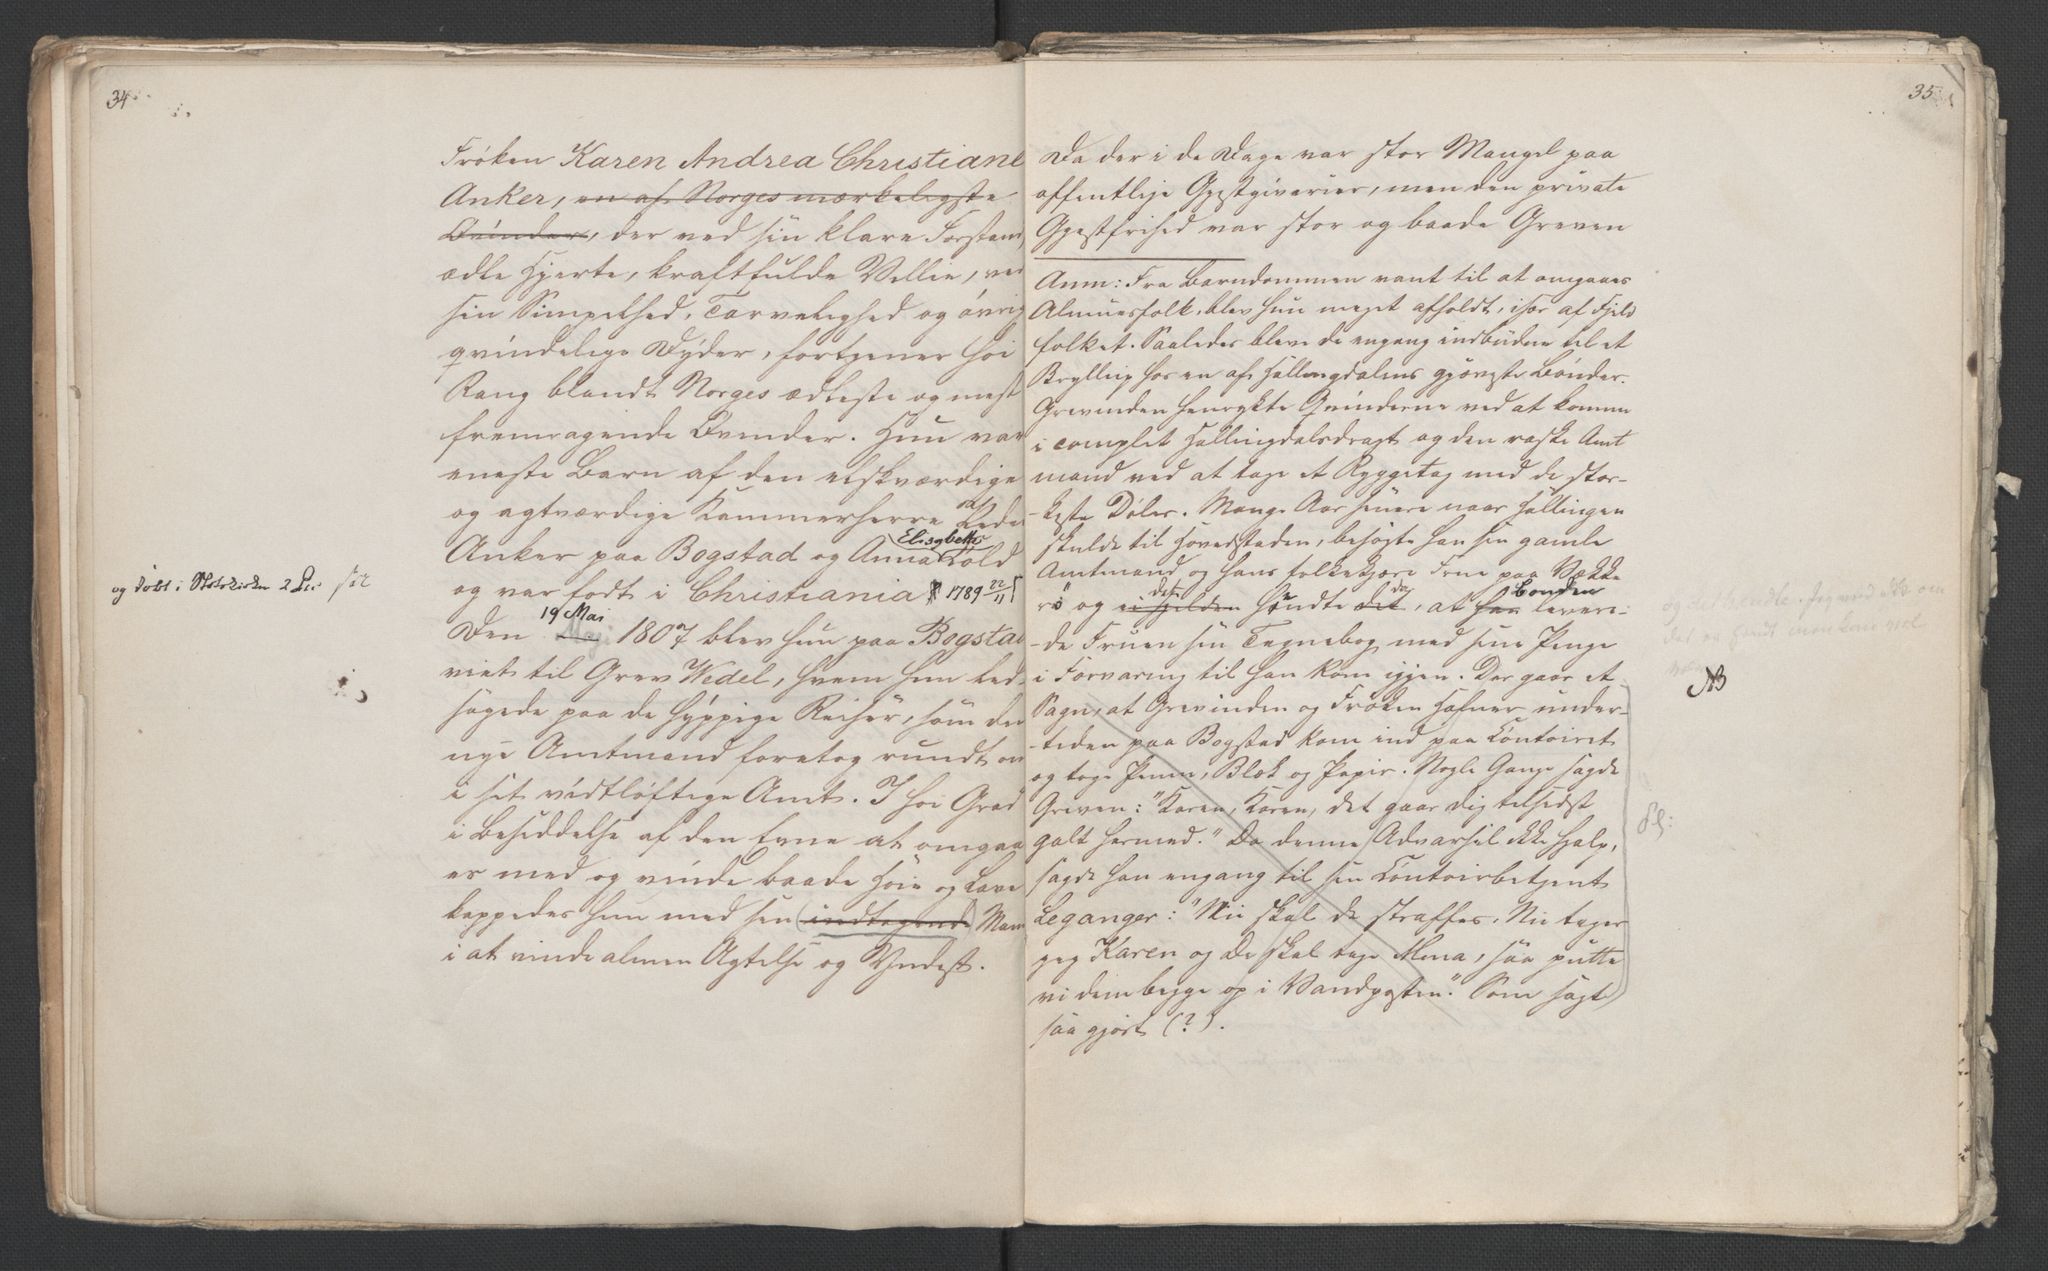 34
Frøken Karen Andrea Christiane
Anker, en af Norges mærkeligste
Qvinder, der ved sin klare Forstand,
ædle Hjerte, kraftfulde Villie, ved
sin Simpelhed, Tarvelighed og øvrige
qvindelige Dyder, fortjener høi
Rang blandt Norges ædleste og mest
fremragende Qvinder. Hun var
eneste Barn af den elskværdige
og agtværdige Kammerherre Peder
Anker paa Bogstad og Anna Elisabeth Cold
og var født i Christiania 1789 22/11
og døbt i Slotskirken 2 Dec
Den 19 Mai 1807 blev hun paa Bogstad
viet til Grev Wedel, hvem hun led-
sagede paa de hyppige Reiser, som den
nye Amtmand foretog rundt om
i sit vidtløftige Amt. I høi Grad
i Besiddelse af den Evne at omgaa-
es med og vinde baade Høie og Lave
kappedes hun med sin indtagende Mand
i at vinde almen Agtelse og Yndest.
35
Da der i de Dage var stor Mangel paa
offentlige Gjestgiverier, men den private
Gjestfrihed var stor og baade Greven
Anm: Fra Barndommen vant til at omgaaes
Almuesfolk, blev hun meget afholdt, især af Fjeld-
folket. Saaledes bleve de engang indbudne til et
Bryllup hos en af Hallingdalens gjæveste Bønder.
Grevinden henrykte Qvinderne ved at komme
i complet Hallingdalsdragt og den raske Amt
mand ved at tage et Ryggetag med de stær-
keste Døler. Mange Aar senere naar Hallingen
skulde til Hovedstaden, besøgte han sin gamle
Amtmand og hans folkekjære Frue paa Vække
rö og ei sjelden hændte det da, at han Bonden levere-
de Fruen sin Tegnebog med sine Penge
i Forvaring til han kom igjen. Der gaar et
Sagn, at Grevinden og Frøken Hafner under-
tiden paa Bogstad kom ind paa Contoiret
og toge Penne, Blæk og Papir. Nogle Gange sagde
Greven: "Karen, Karen, det gaar dig tilsidst
galt hermed." Da denne Advarsel ikke hjalp,
sagde han engang til sin Contoirbetjent
Leganger: "Nu skal de straffes. Nu tager
jeg Karen og De skal tage Mina, saa putte
vi dem begge op i Vandposten." Som sagt
saa gjort (?).
NB